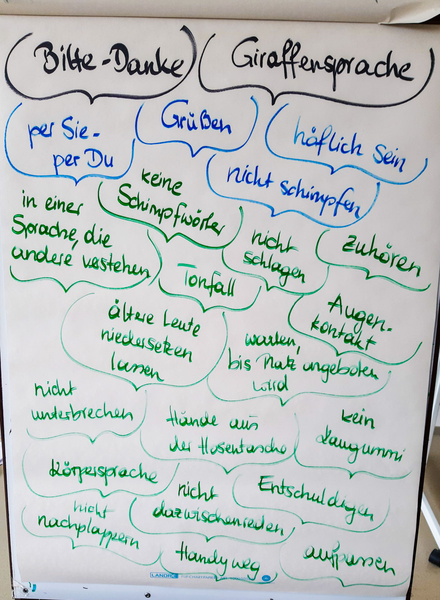 Bitte-Danke
Giraffensprache
per Sie-
per Du
Grüßen
höflich sein
nicht schimpfen
in einer
Sprache, die
andere verstehen
keine
Schimpfwörter
nicht
schlagen
zuhören
Tonfall
Augen-
kontakt
ältere Leute
niedersetzen
lassen
warten,
bis Platz angeboten
wird
nicht
unterbrechen
Hände aus
der Hosentasche
kein
Kaugummi
Körpersprache
nicht
dazwischenreden
Entschuldigen
nicht
nachplappern
Handy weg
aufpassen